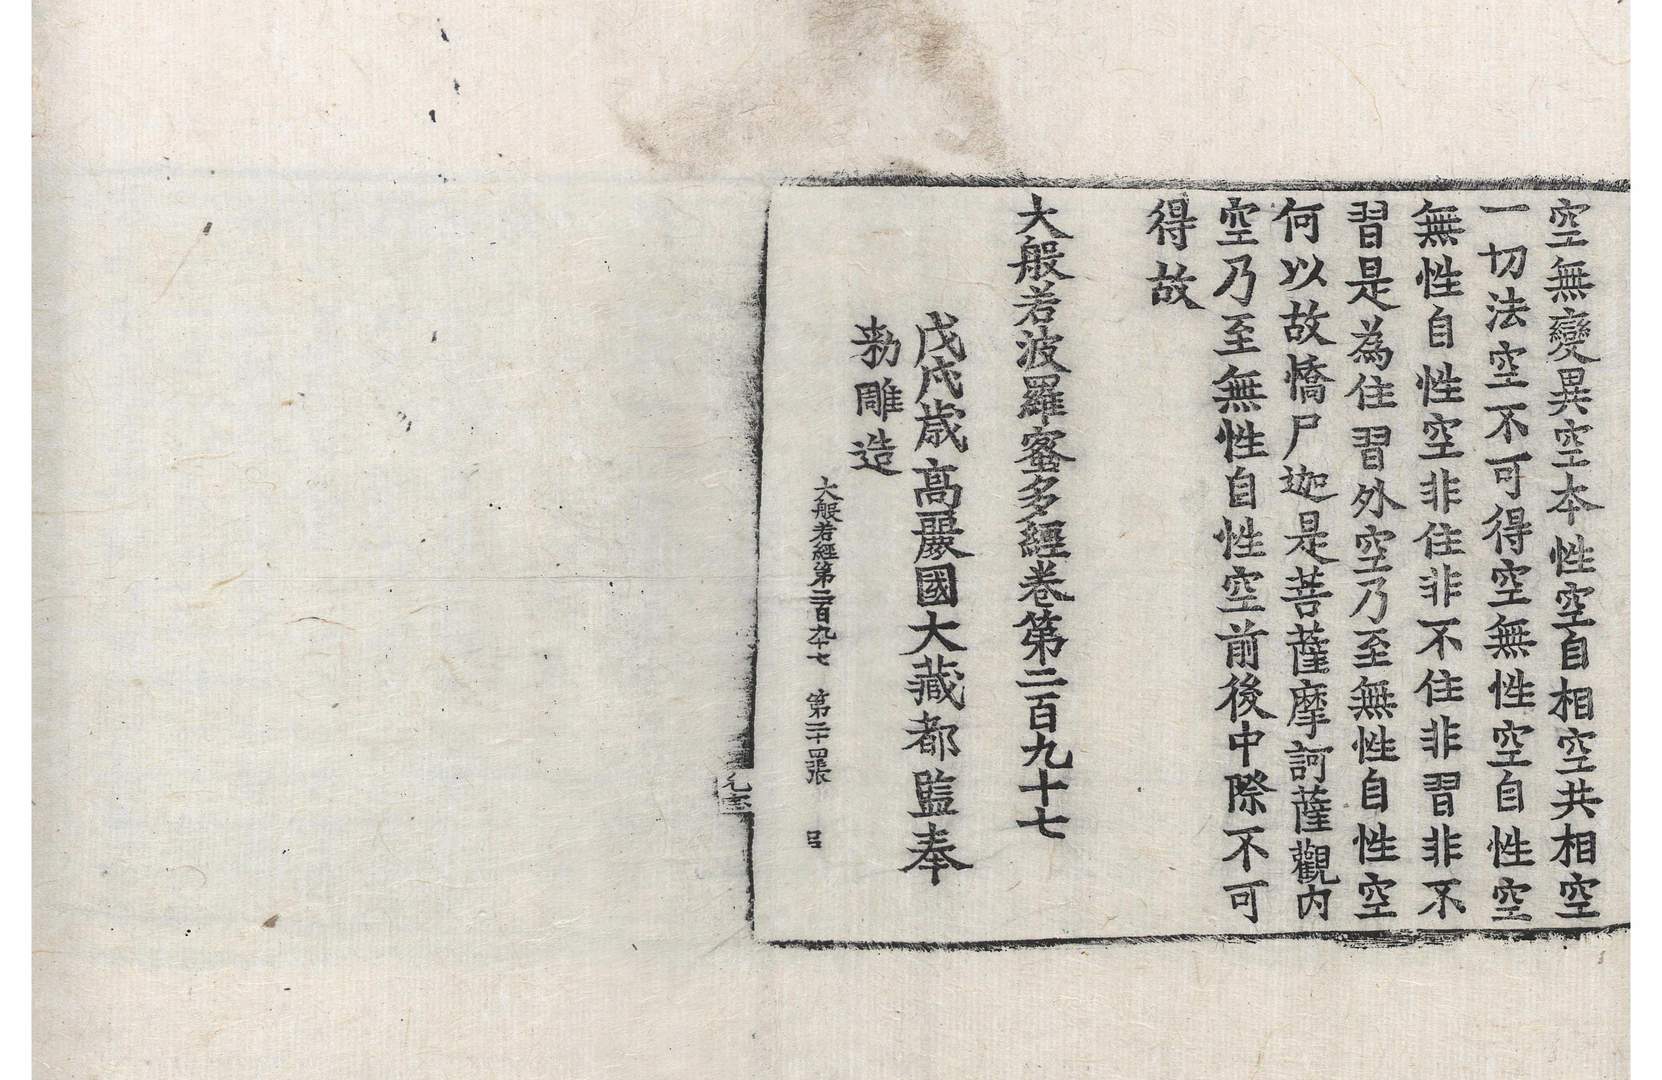 空無變異空本性空自相空共相空
一切法空不可得空無性空自性空
無性自性空非住非不住非習非不
習是為住習外空乃至無性自性空
何以故憍尸迦是菩薩摩訶薩觀內
空乃至無性自性空前後中際不可
得故
大般若波羅蜜多經卷第二百九十七
戊戌歲高麗國大藏都監奉
勑雕造
大般若經第二百九十七 第二十四張 呂